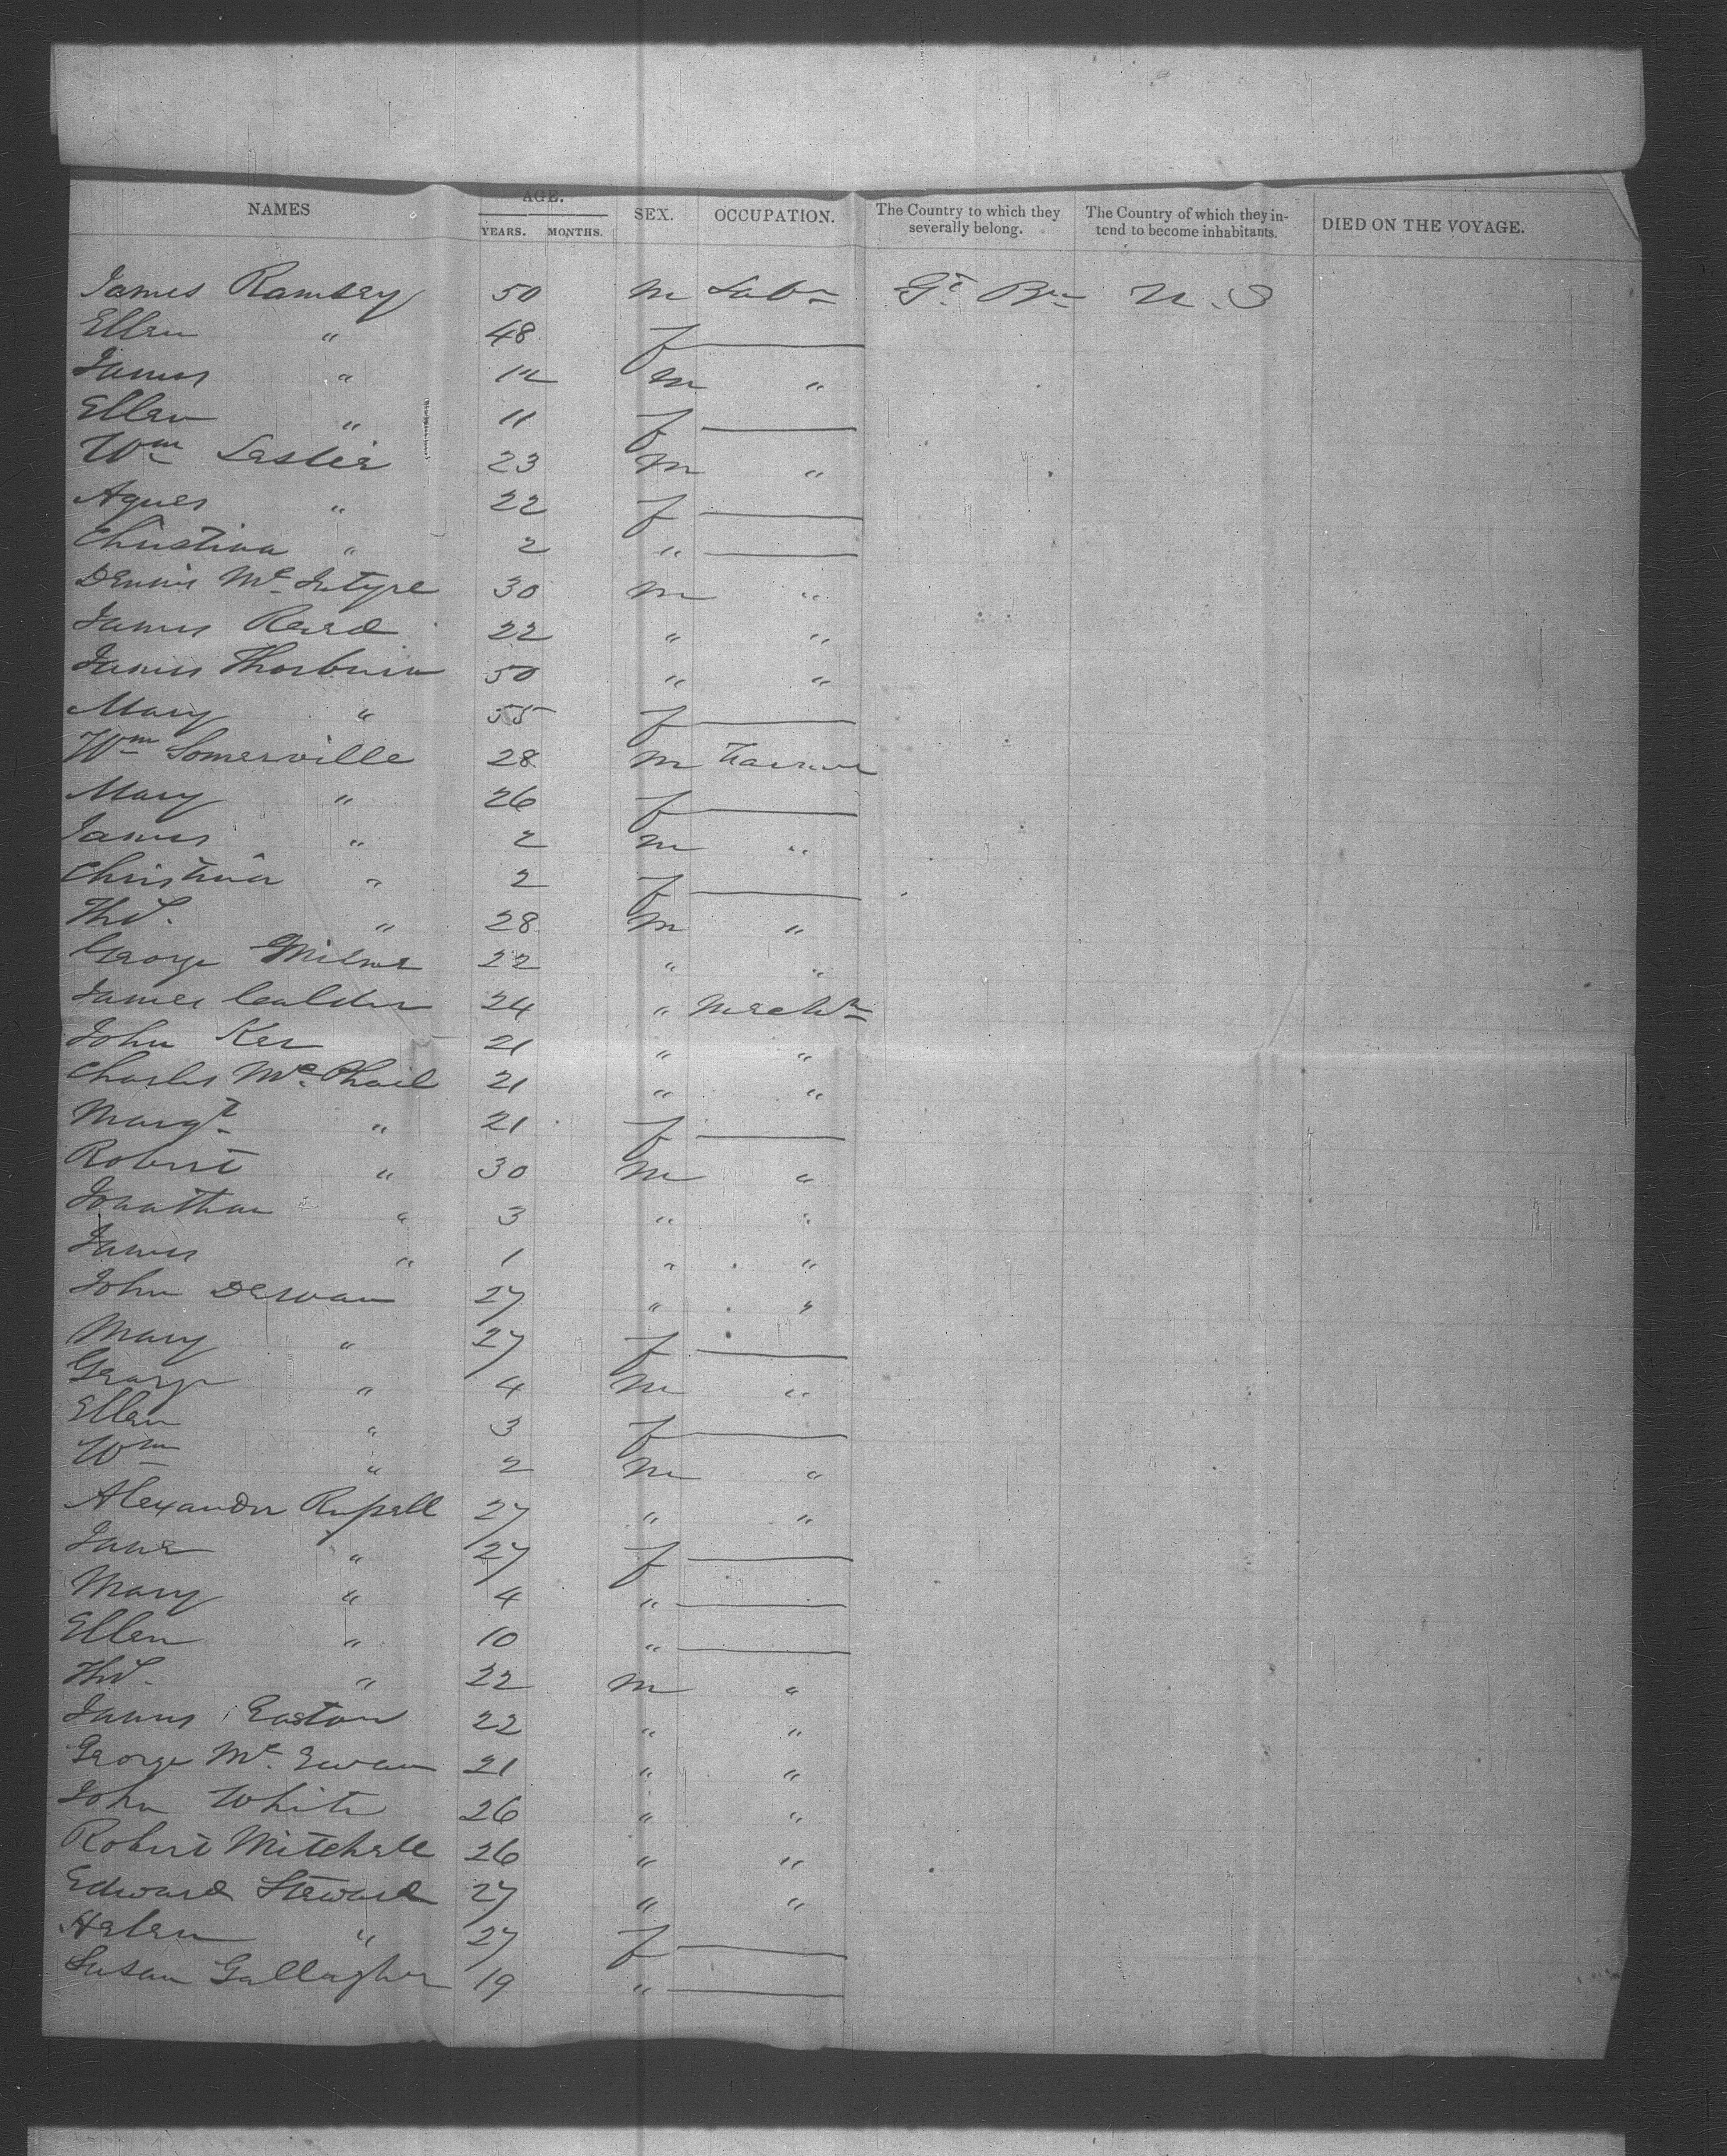 NAMES AGE. YEARS. MONTHS. SEX. OCCUPATION. The Country to which they severally belong. The Country of which they intend to become inhabitants. DIED ON THE VOYAGE.
James Ramsey 50 m Labr Gt. Brn U.S
Ellen " 48 f
James " 14 m "
Ellen " 11 f
Wm Leslie 23 m "
Agnes " 22 f
Christina " 2 "
Dennis Mc Intyre 30 m "
James Reid 22 " "
James Thorburn 50 " "
Mary " 55 f
Wm Somerville 28 m Farmer
Mary " 26 f
James " 2 m "
Christina " 2 f
Thos. " 28 m "
George Milne 22 " "
James Calder 24 " Mechn
John Ker 21 " "
Charles Mc Phail 21 " "
Margt " 21 f
Robert " 30 m "
Jonathan " 3 " "
James " 1 " "
John Dewan 27 " "
Mary " 27 f
George " 4 m "
Ellen " 3 f
Wm " 2 m "
Alexander Russell 27 " "
Jane " 27 f
Mary " 4 "
Ellen " 10 "
Thos. " 22 m "
James Easton 22 " "
George Mc. Ewan 21 " "
John White 26 " "
Robert Mitchell 26 " "
Edward Steward 27 " "
Helen " 27 f
Susan Gallagher 19 "